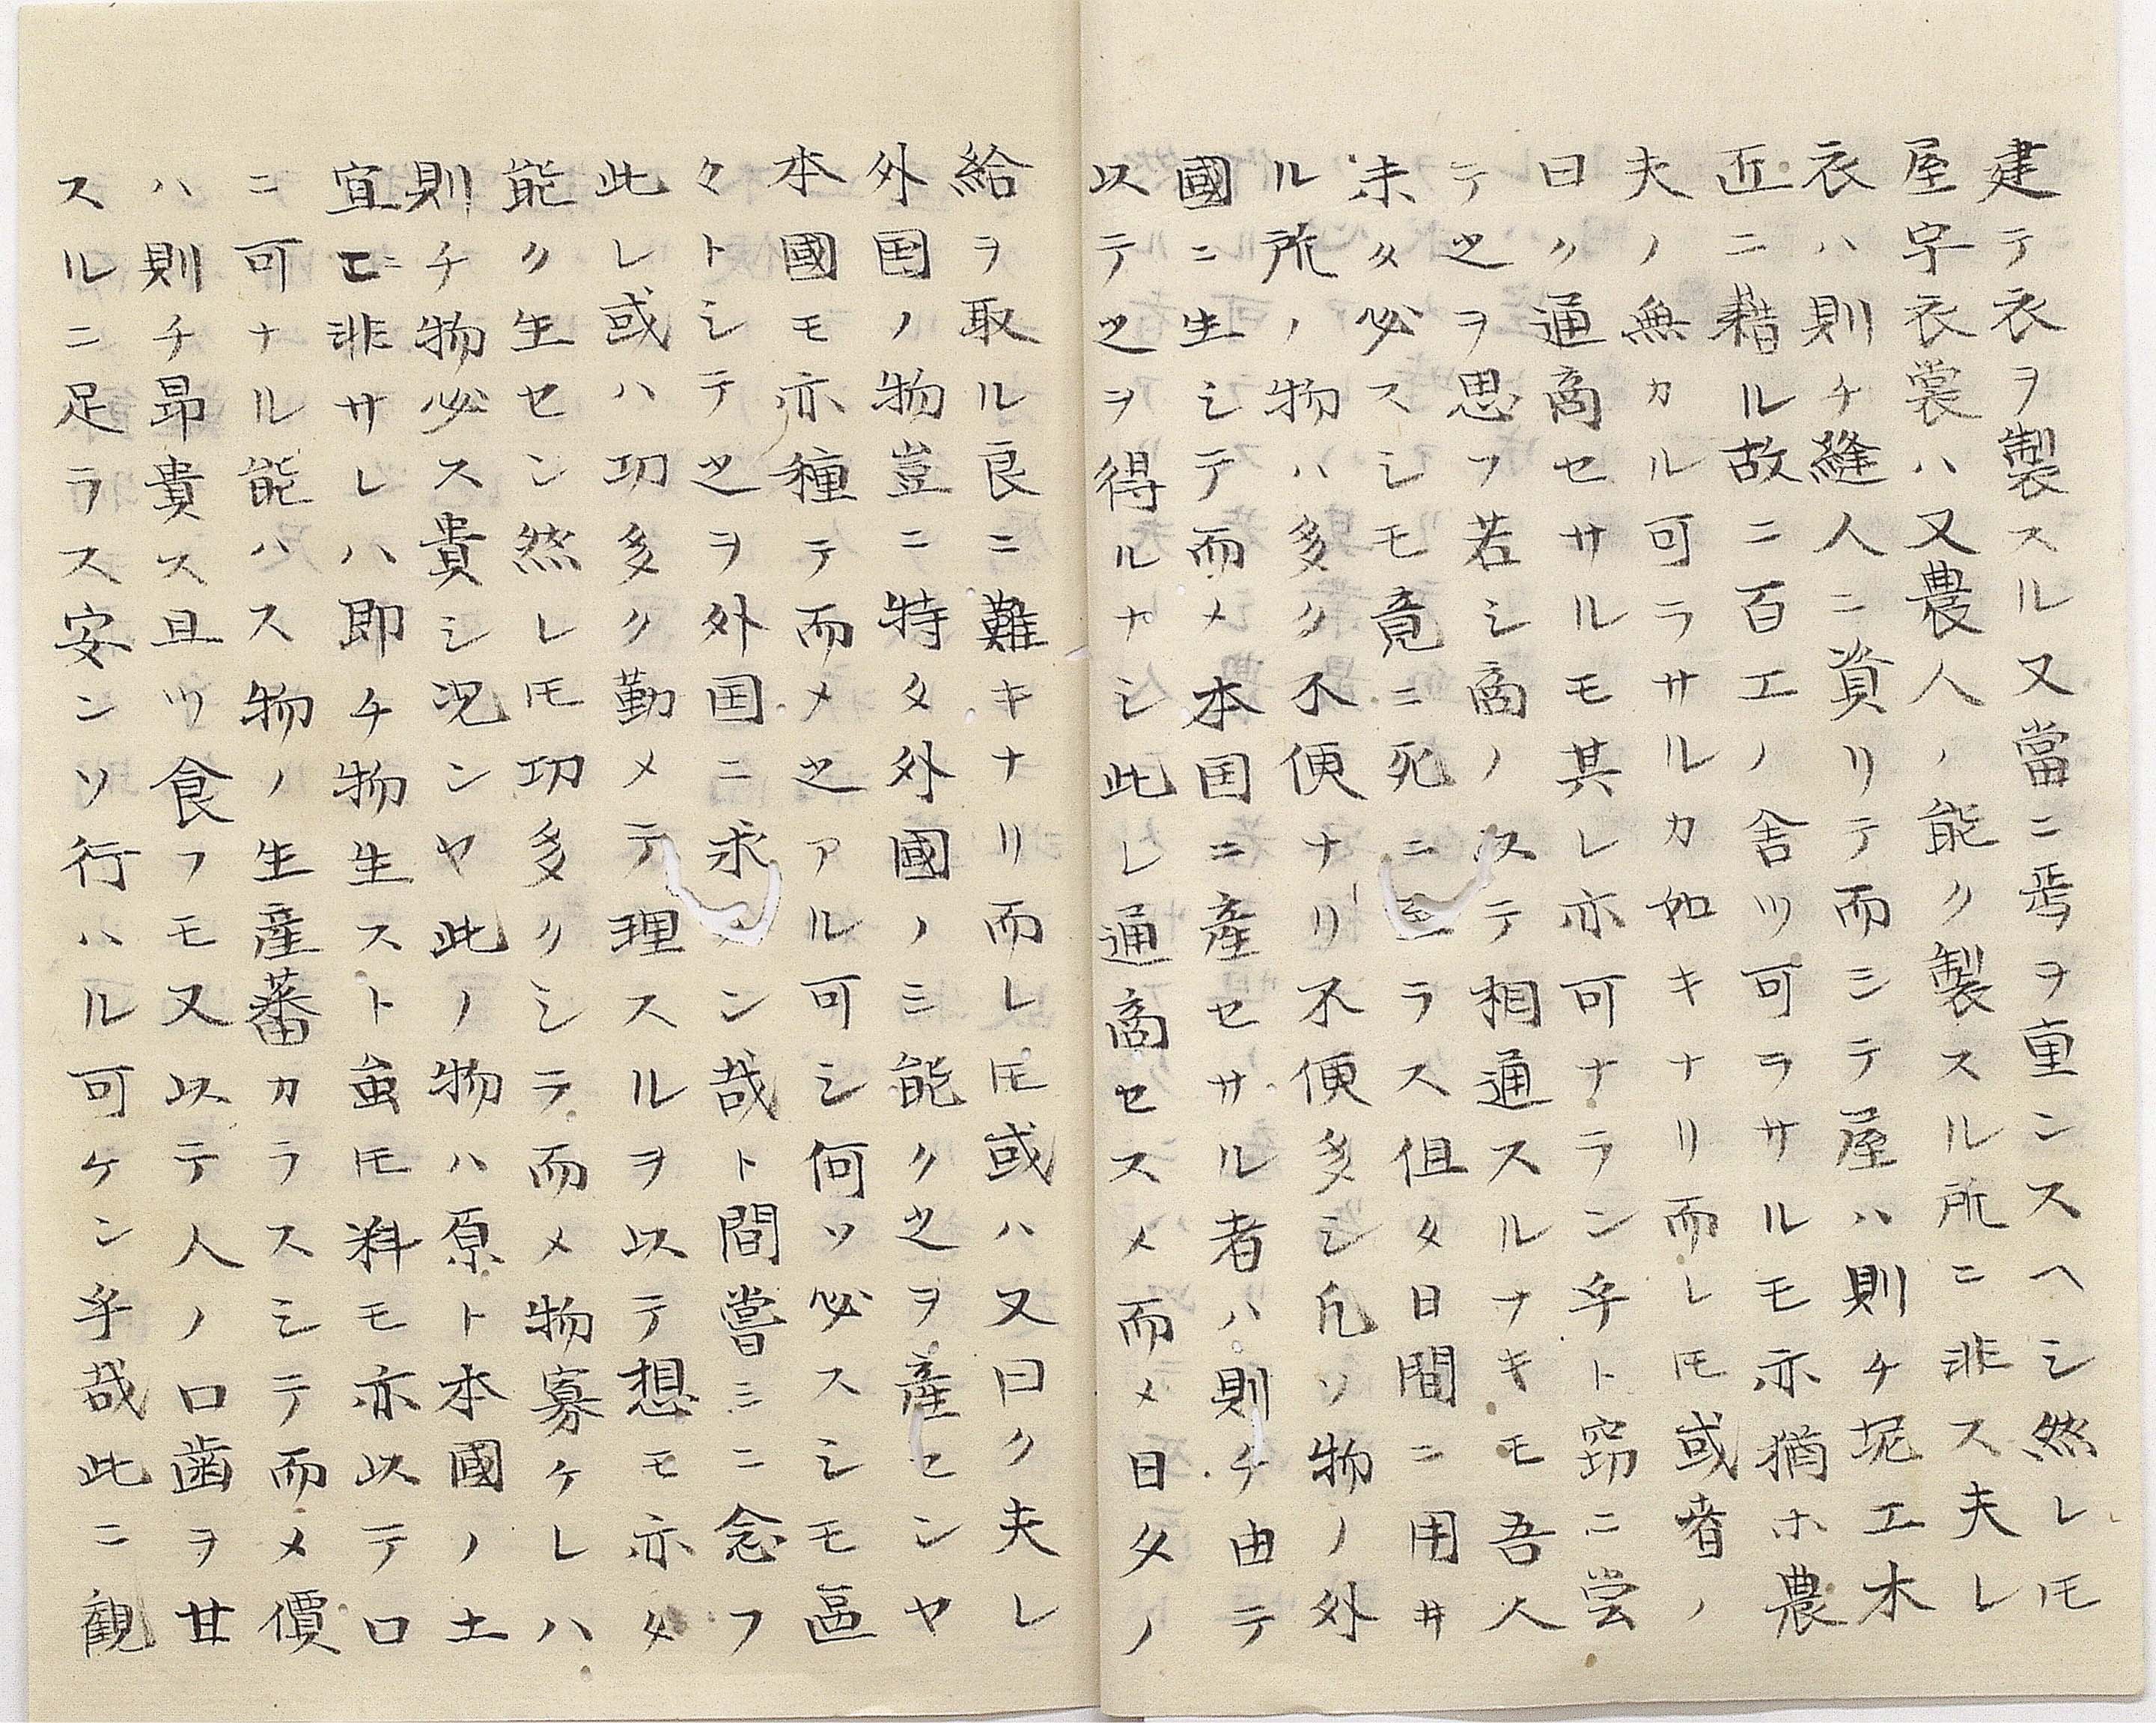 建テ衣ヲ製スル又當ニ焉ヲ重ンスヘシ然レ𪜈
屋宇衣裳ハ又農人ノ能ク製スル所ニ非ス夫レ
衣ハ則チ縫人ニ資リテ而シテ屋ハ則チ坭工木
匠ニ藉ル故ニ百工ノ舎ツ可ラサルモ亦猶ホ農
夫ノ無カル可ラサルカ如キナリ而レ𪜈或者ノ
曰ク通商セサルモ其レ亦可ナラン乎ト窃ニ尝
テ之ヲ思フ若シ商ノ ステ相通スルナキモ吾人
未タ必スシモ竟ニ死ニ至ラス但タ日間ニ用ヰ
ル所ノ物ハ多ク不便ナリ不便多シ凢ソ物ノ外
國ニ生シテ而メ本国ニ産セサル者ハ則チ由テ
以テ之ヲ得ルナシ此レ通商セスメ而メ日夕ノ
給ヲ取ル良ニ難キナリ而レ𪜈或ハ又曰ク夫レ
外国ノ物豈ニ特タ外國ノミ能ク之ヲ産センヤ
本國モ亦種テ而メ之アル可シ何ソ必スシモ區
々トシテ之ヲ外国ニ求メン哉ト間嘗ミニ念フ
此レ或ハ功多ク勤メテ理スルヲ以テ想モ亦タ
能ク生セン然レ𪜈功多クシテ而メ物寡ケレハ
則チ物必ス貴シ况ンヤ此ノ物ハ原ト本國ノ土
宜ニ非サレハ即チ物生スト虽𪜈料モ亦以テ口
ニ可ナル能ハス物ノ生産蕃カラスシテ而メ價
ハ則チ昻貴ス且ツ食フモ又以テ人ノ口歯ヲ甘
スルニ足ラス安ンソ行ハル可ケン乎哉此ニ観